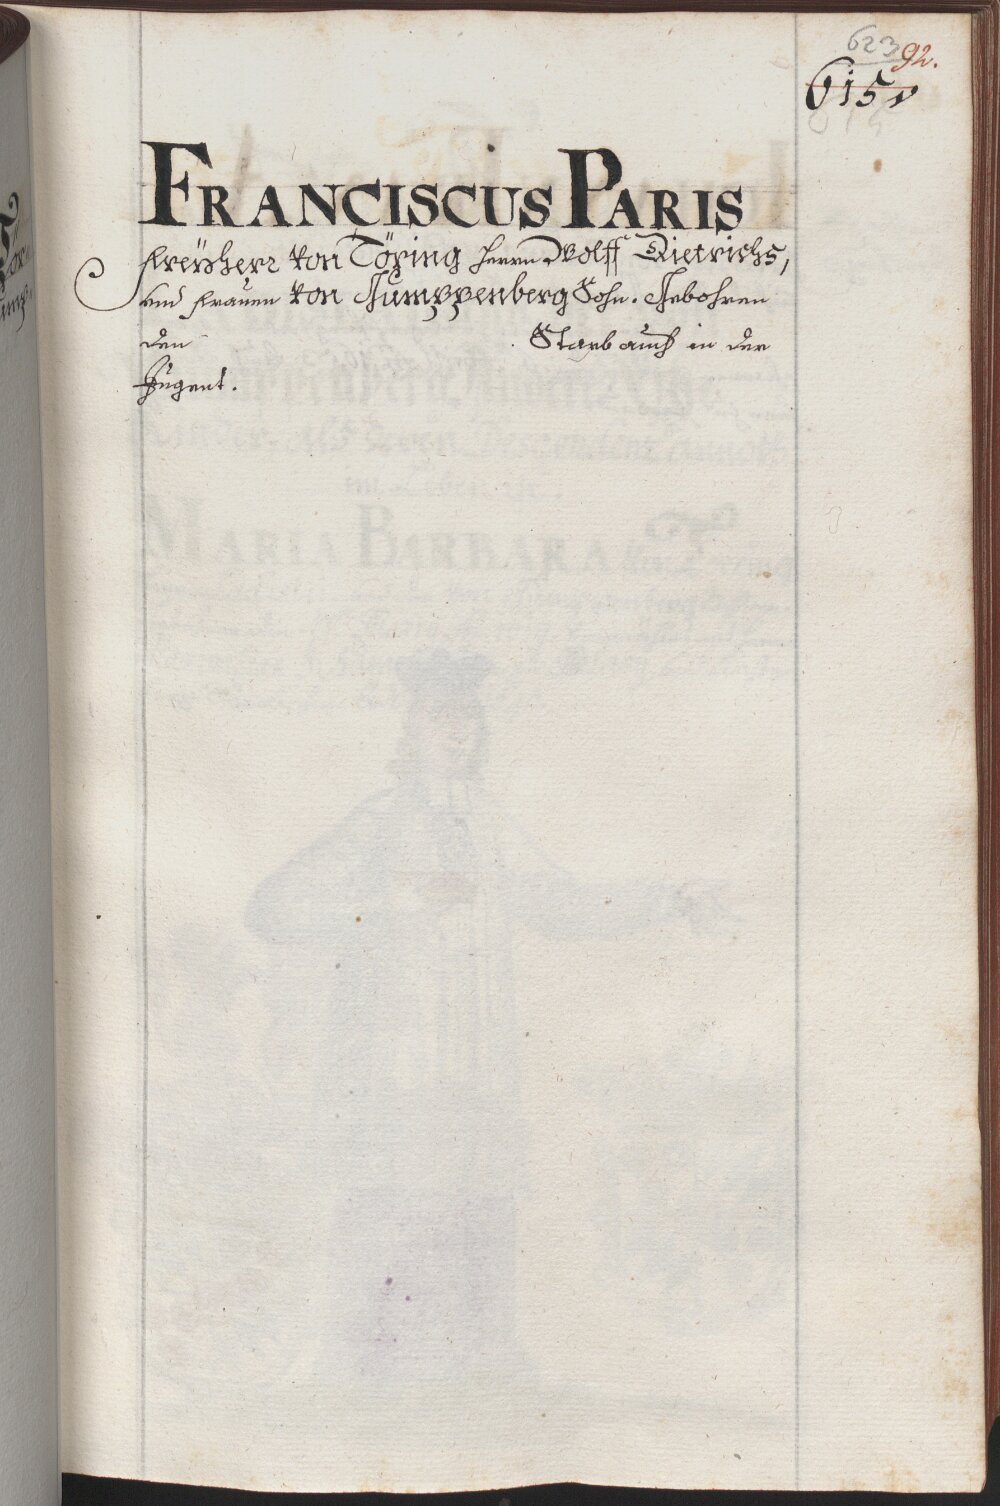 623
92.
615
FRANCISCUS PARIS
Freÿherr von Töring herrn Wolff Dietrichs,
und Frauen von Gumppenberg Sohn. Gebohren
den Starb auch in der
Jugent.
MARIA BARBARA